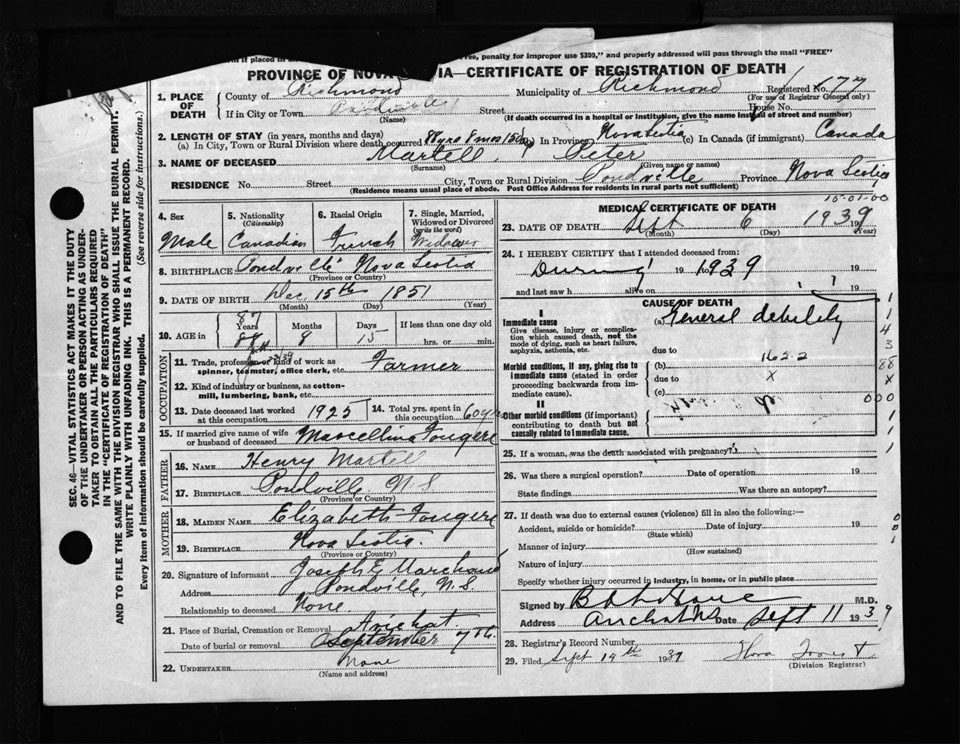 Free, penalty for improper use $300," and properly addressed will pass through the mail "FREE"
PROVINCE OF NOVA IA—CERTIFICATE OF REGISTRATION OF DEATH
1. PLACE OF DEATH
County of Richmond Municipality of Richmond Registered No. 677
(For use of Registrar General only)
If in City or Town Street House No.
(Name) (If death occurred in a hospital or institution, give the name instead of street and number)
2. LENGTH OF STAY (in years, months and days)
(a) In City, Town or Rural Division where death occurred 88 yrs 8 mos 15d (b) In Province Nova Scotia (c) In Canada (if immigrant) Canada
3. NAME OF DECEASED Martell, Peter
(Surname) (Given name or names)
RESIDENCE No. Street City, Town or Rural Division Pondville Province Nova Scotia
(Residence means usual place of abode. Post Office Address for residents in rural parts not sufficient)
4. Sex Male
5. Nationality (Citizenship) Canadian
6. Racial Origin French
7. Single, Married, Widowed or Divorced (write the word) Widower
8. BIRTHPLACE Pondville Nova Scotia
(Province or Country)
9. DATE OF BIRTH Dec 15th 1851
(Month) (Day) (Year)
10. AGE in Years 87 Months 8 Days 15 If less than one day old hrs. or min.
OCCUPATION
11. Trade, profession or kind of work as spinner, teamster, office clerk, etc. Farmer
12. Kind of industry or business, as cotton-mill, lumbering, bank, etc.
13. Date deceased last worked at this occupation 1925
14. Total yrs. spent in this occupation 60 yrs
15. If married give name of wife or husband of deceased Marcellina Fougere
FATHER
16. NAME Henry Martell
17. BIRTHPLACE Pondville N.S
(Province or Country)
MOTHER
18. MAIDEN NAME Elizabeth Fougere
19. BIRTHPLACE Nova Scotia.
(Province or Country)
20. Signature of informant Joseph E Marchand
Address Pondville, N.S.
Relationship to deceased None
21. Place of Burial, Cremation or Removal Arichat
Date of burial or removal September 7th.
22. UNDERTAKER None
(Name and address)
15-01-00
MEDICAL CERTIFICATE OF DEATH
23. DATE OF DEATH Sept 6 1939
(Month) (Day) (Year)
24. I HEREBY CERTIFY that I attended deceased from:
During 19 to 1939
and last saw h alive on 19
CAUSE OF DEATH
I
Immediate cause (a) General debility
Give disease, injury or complication which caused death, not the mode of dying, such as heart failure, asphyxia, asthenia, etc. due to
162.2
Morbid conditions, if any, giving rise to immediate cause (stated in order proceeding backwards from immediate cause). (b)
due to x
(c)
II
Other morbid conditions (if important) contributing to death but not causally related to immediate cause.
25. If a woman, was the death associated with pregnancy?
26. Was there a surgical operation? Date of operation 19
State findings Was there an autopsy?
27. If death was due to external causes (violence) fill in also the following:—
Accident, suicide or homicide? Date of injury 19
(State which)
Manner of injury
(How sustained)
Nature of injury
Specify whether injury occurred in industry, in home, or in public place
Signed by M.D.
Address Date Sept 11 1939
28. Registrar's Record Number
29. Filed Sept 14th 1939
(Division Registrar)
SEC. 46—VITAL STATISTICS ACT MAKES IT THE DUTY
OF THE UNDERTAKER OR PERSON ACTING AS UNDER-
TAKER TO OBTAIN ALL THE PARTICULARS REQUIRED
IN THE "CERTIFICATE OF REGISTRATION OF DEATH"
AND TO FILE THE SAME WITH THE DIVISION REGISTRAR WHO SHALL ISSUE THE BURIAL PERMIT.
WRITE PLAINLY WITH UNFADING INK. THIS IS A PERMANENT RECORD.
Every item of information should be carefully supplied. (See reverse side for instructions.)